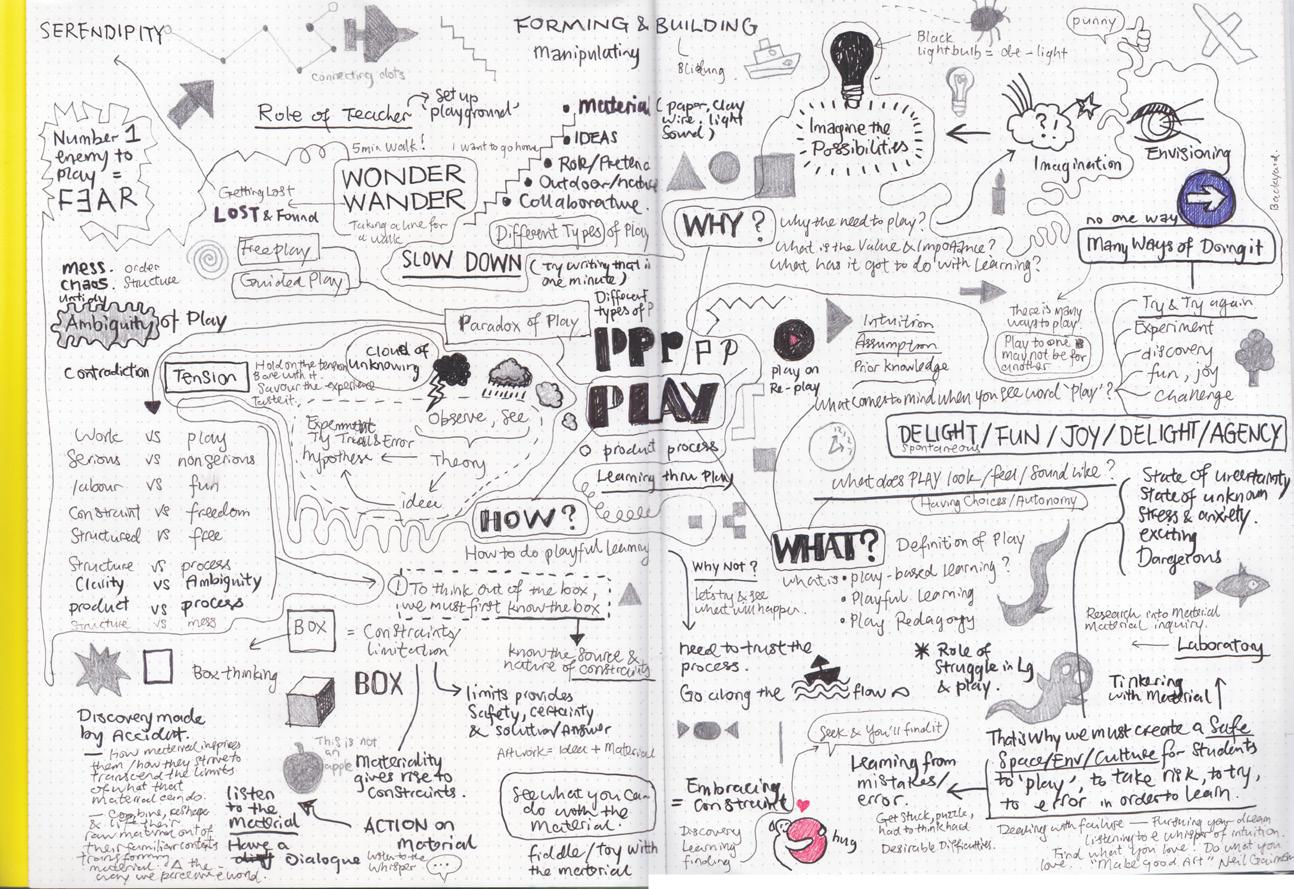 SERENDIPITY
connecting dots
FORMING & BUILDING
Manipulating
Number 1
enemy to
play =
FEAR
Role of Teacher
set up
'playground'
5min walk!
I want to go home
WONDER
WANDER
Taking a line for
a walk
Getting Lost
LOST & Found
Material (paper, clay
wire, light
Sound)
IDEAS
Role/Pretend
Outdoor/nature
Collaborative.
Different Types of Play
Black
lightbulb = de-light
punny
Imagine the
Possibilities
?!
Imagination
Envisioning
Backyard.
no one way
Many Ways of Doing it
WHY?
Why the need to play?
What is the Value & Importance?
What has it got to do with Learning?
Freeplay
Guided Play
SLOW DOWN (Try writing that in
one minute)
mess. order
chaos. Structure
untidy
Ambiguity of Play
Contradiction
Tension
Hold on the tension
Savour the experience
Taste it.
Cloud of
Unknowing
Paradox of Play
Different
types of P
PPP PP
PLAY
product process
Learning thru Play
play on
Re-play
Intuition
Assumption
Prior knowledge
There is many
ways to play.
Play to one is
may not be for
another
Try & Try again
Experiment
discovery
fun, joy
Challenge
What comes to mind when you see word 'Play'?
DELIGHT/FUN/JOY/DELIGHT/AGENCY
Spontaneous
What does PLAY look/feel/Sound like?
Having Choices/Autonomy
State of uncertainty
State of unknown
Stress & anxiety.
exciting
Dangerous
Observe, See
Theory
idea
hypothese
Experiment
Try Trial & Error
Work vs play
Serious vs nonserious
labour vs fun
Constraint vs freedom
Structured vs free
Structure vs process
Clarity vs Ambiguity
product vs process
Structure vs mess
HOW?
How to do playful learning
1 To think out of the box,
we must first know the box
know the source &
nature of constraints
BOX = Constraints/
Limitation
Box thinking
BOX
limits provides
Safety, certainty
& solution/Answer
Artwork = Idea + Material
WHAT?
Definition of Play
What is • Play-based Learning?
• Playful Learning
• Play Pedagogy
Why Not?
let's try & see
what will happen.
need to trust the
process.
Go along the flow
* Role of
Struggle in Lg
& play.
Research into Material
Material inquiry.
Laboratory
Tinkering
with Material
Discovery made
by Accident.
— How material inspires
them/how they strive to
transcend the limits
of what that
material can do.
— Combine, reshape
& lift their
raw material out of
their familiar contexts
transforming
material. Δ the
way we perceive world.
This is not
an
apple
Materiality
gives rise to
Constraints.
listen
to the
Material
Have a
Dialogue
ACTION on
Material
Listen to the
Whisper
See what you can
do with the
Material.
fiddle/toy with
the material
Seek & You'll find it
Embracing
= Constraint
Discovery
Learning
finding
hug
Learning from
mistakes/
error.
Get stuck, puzzle,
had to think hard
Desirable Difficulties.
That's why we must create a Safe
Space/Env/Culture for students
to 'play', to take risk, to try,
to error in order to learn.
Dealing with failure — Pursuing your dream
listening to e whisper of intuition.
Find what you love. Do what you
love. "Make good Art" Neil Gaiman